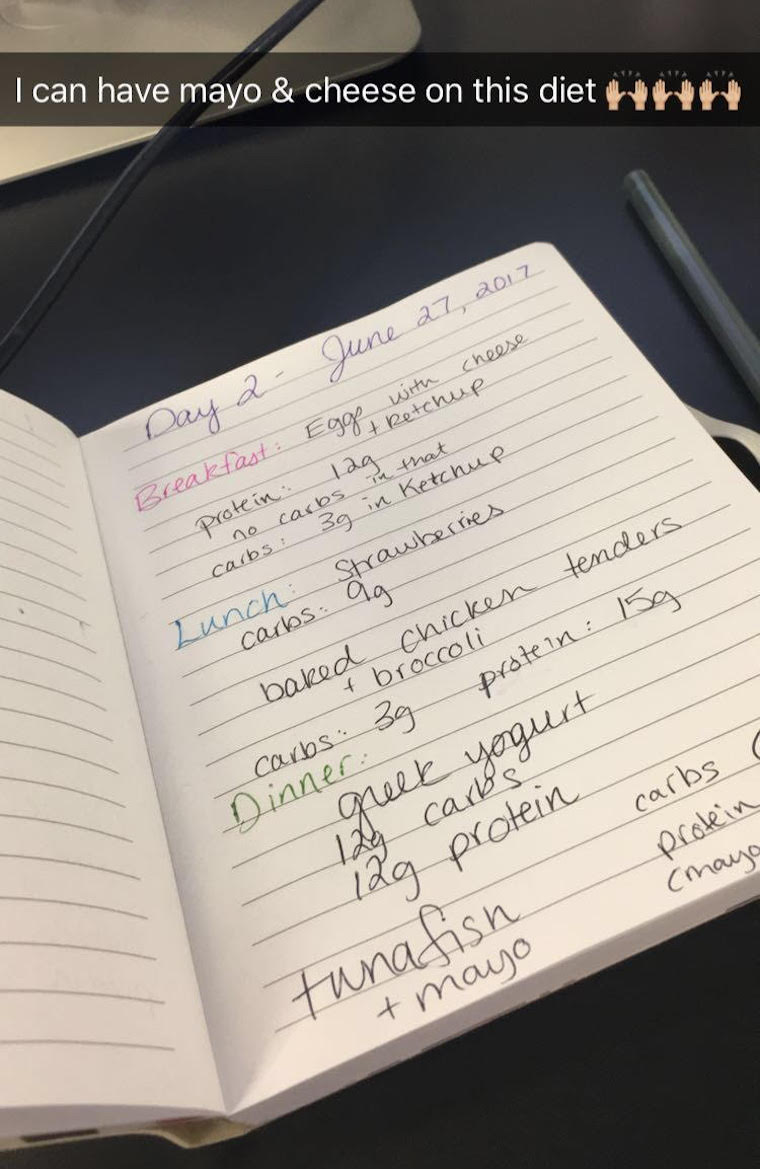 I can have mayo & cheese on this diet 🙌🏼🙌🏼🙌🏼
Day 2 - June 27, 2017
Breakfast: Eggs with cheese
+ ketchup
Protein: 12g
no carbs in that
carbs: 3g in ketchup
Lunch: Strawberries
carbs: 9g
baked chicken tenders
+ broccoli
carbs: 3g protein: 15g
Dinner:
greek yogurt
12g carbs
12g protein
carbs
protein
(mayo
tunafish
+ mayo